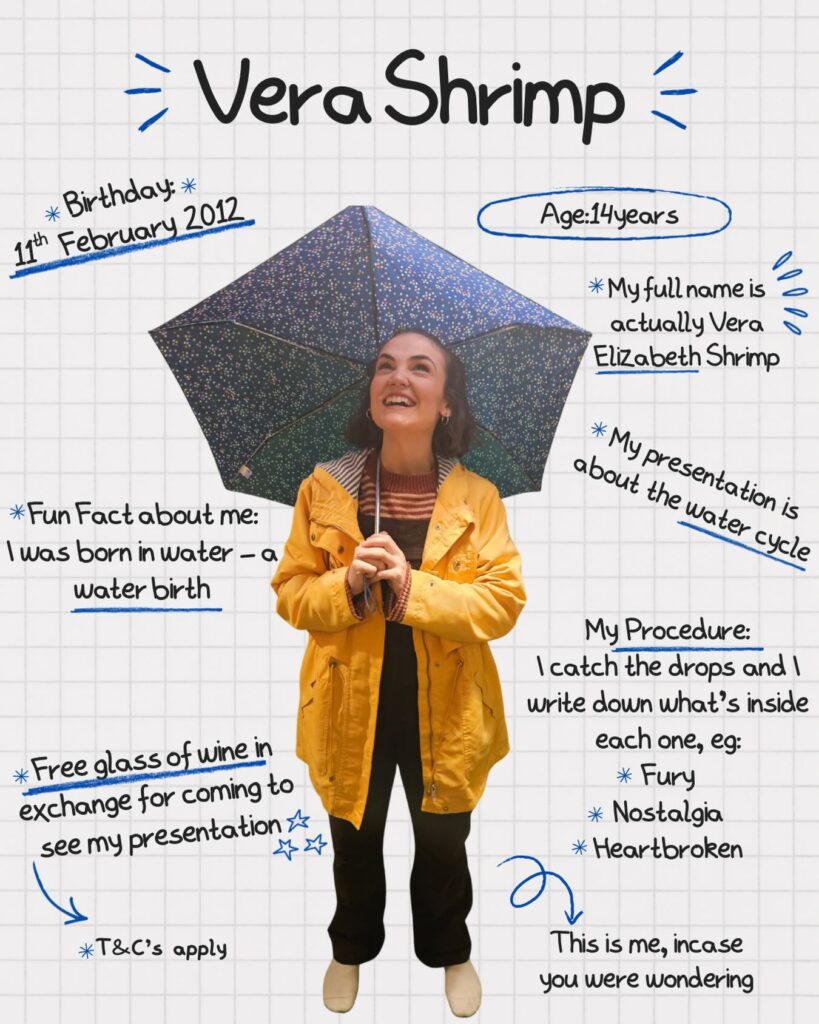 Vera Shrimp
* Birthday: *
11th February 2012
Age:14years
*My full name is
actually Vera
Elizabeth Shrimp
*My presentation is
about the water cycle
*Fun Fact about me:
I was born in water – a
water birth
My Procedure:
I catch the drops and I
write down what's inside
each one, eg:
* Fury
* Nostalgia
* Heartbroken
*Free glass of wine in
exchange for coming to
see my presentation
*T&C's apply
This is me, incase
you were wondering